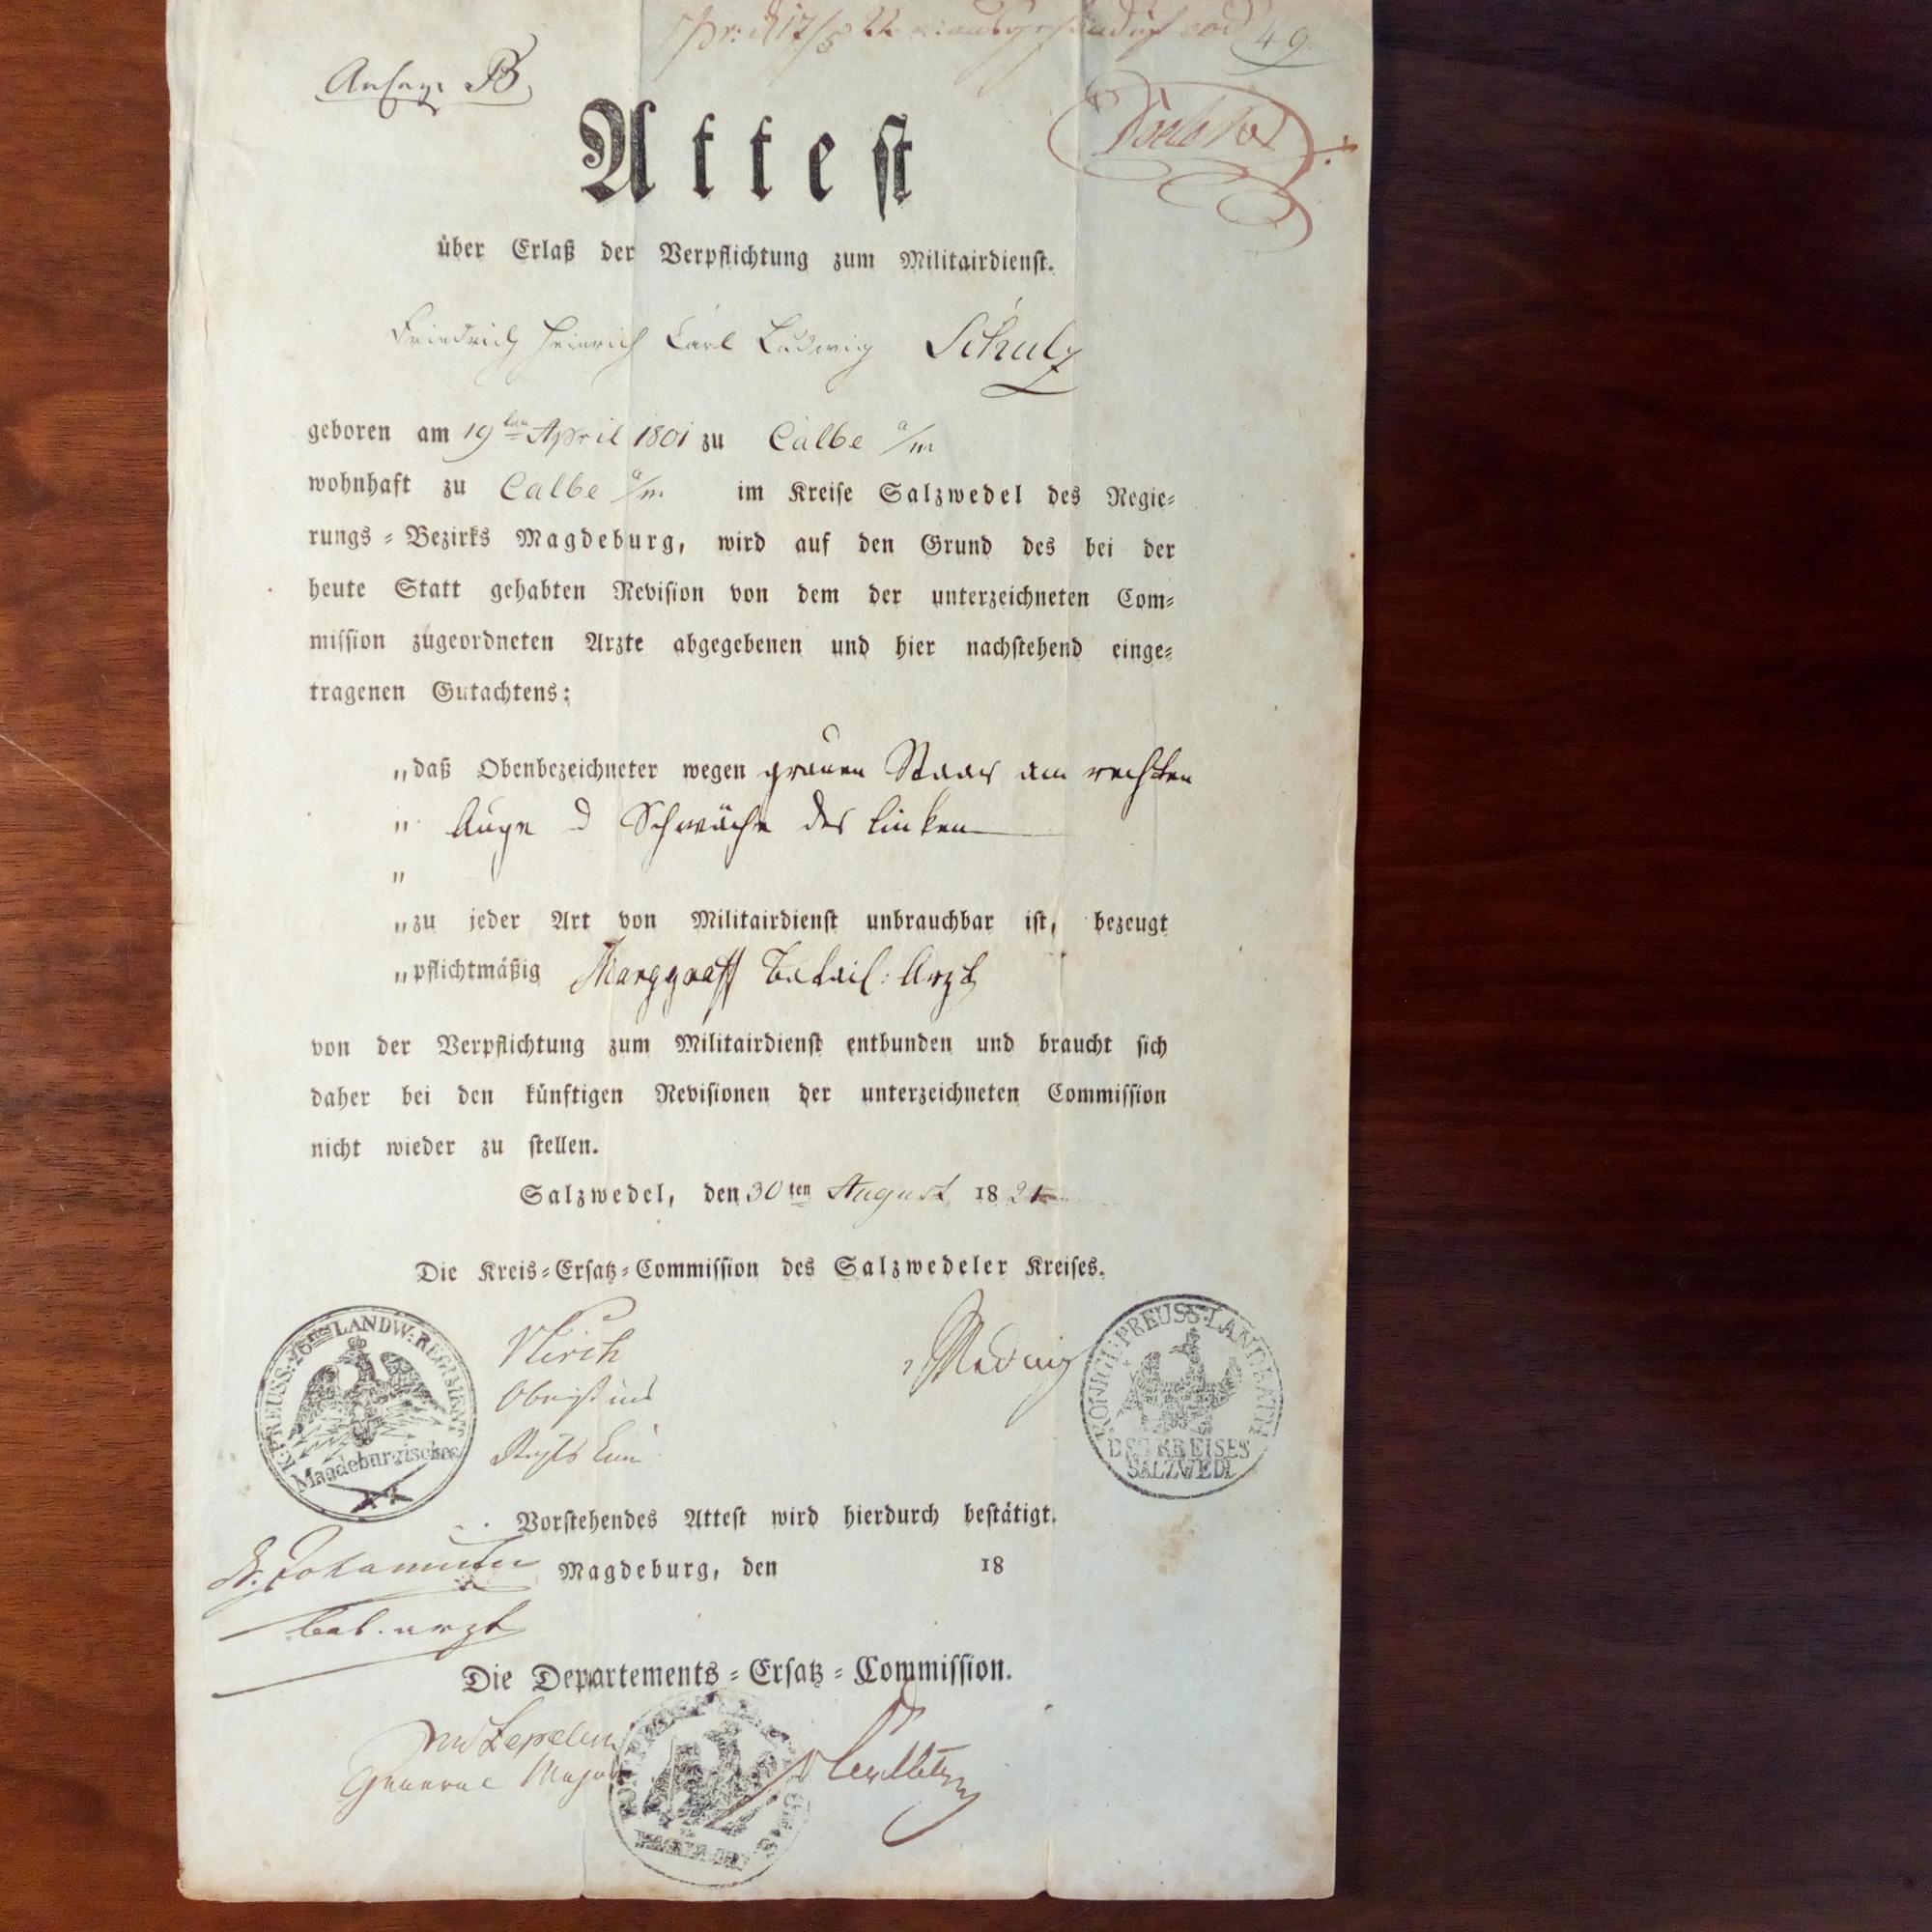 49
Attest
über Erlaß der Verpflichtung zum Militairdienst.
Friedrich Heinrich Carl Ludwig Schulz
geboren am 19ten April 1801 zu Calbe a/m
wohnhaft zu Calbe a/m im Kreise Salzwedel des Regie-
rungs-Bezirks Magdeburg, wird auf den Grund des bei der
heute Statt gehabten Revision von dem der unterzeichneten Com-
mission zugeordneten Arzte abgegebenen und hier nachstehend einge-
tragenen Gutachtens:
„daß Obenbezeichneter wegen grauen Staar am rechten
„ Auge u Schwäche des linken
„
„zu jeder Art von Militairdienst unbrauchbar ist, bezeugt
„pflichtmäßig Marggraff Batail: Arzt
von der Verpflichtung zum Militairdienst entbunden und braucht sich
daher bei den künftigen Revisionen der unterzeichneten Commission
nicht wieder zu stellen.
Salzwedel, den 30ten August 1821
Die Kreis-Ersatz-Commission des Salzwedeler Kreises.
K: PREUSS: 26tes LANDW: REGIMENT
Magdeburgisches
KÖNIGL: PREUSS: LANDRATH
DES KREISES
SALZWEDL
Vorstehendes Attest wird hierdurch bestätigt.
Magdeburg, den 18
Bat. arzt
Die Departements-Ersatz-Commission.
General Major